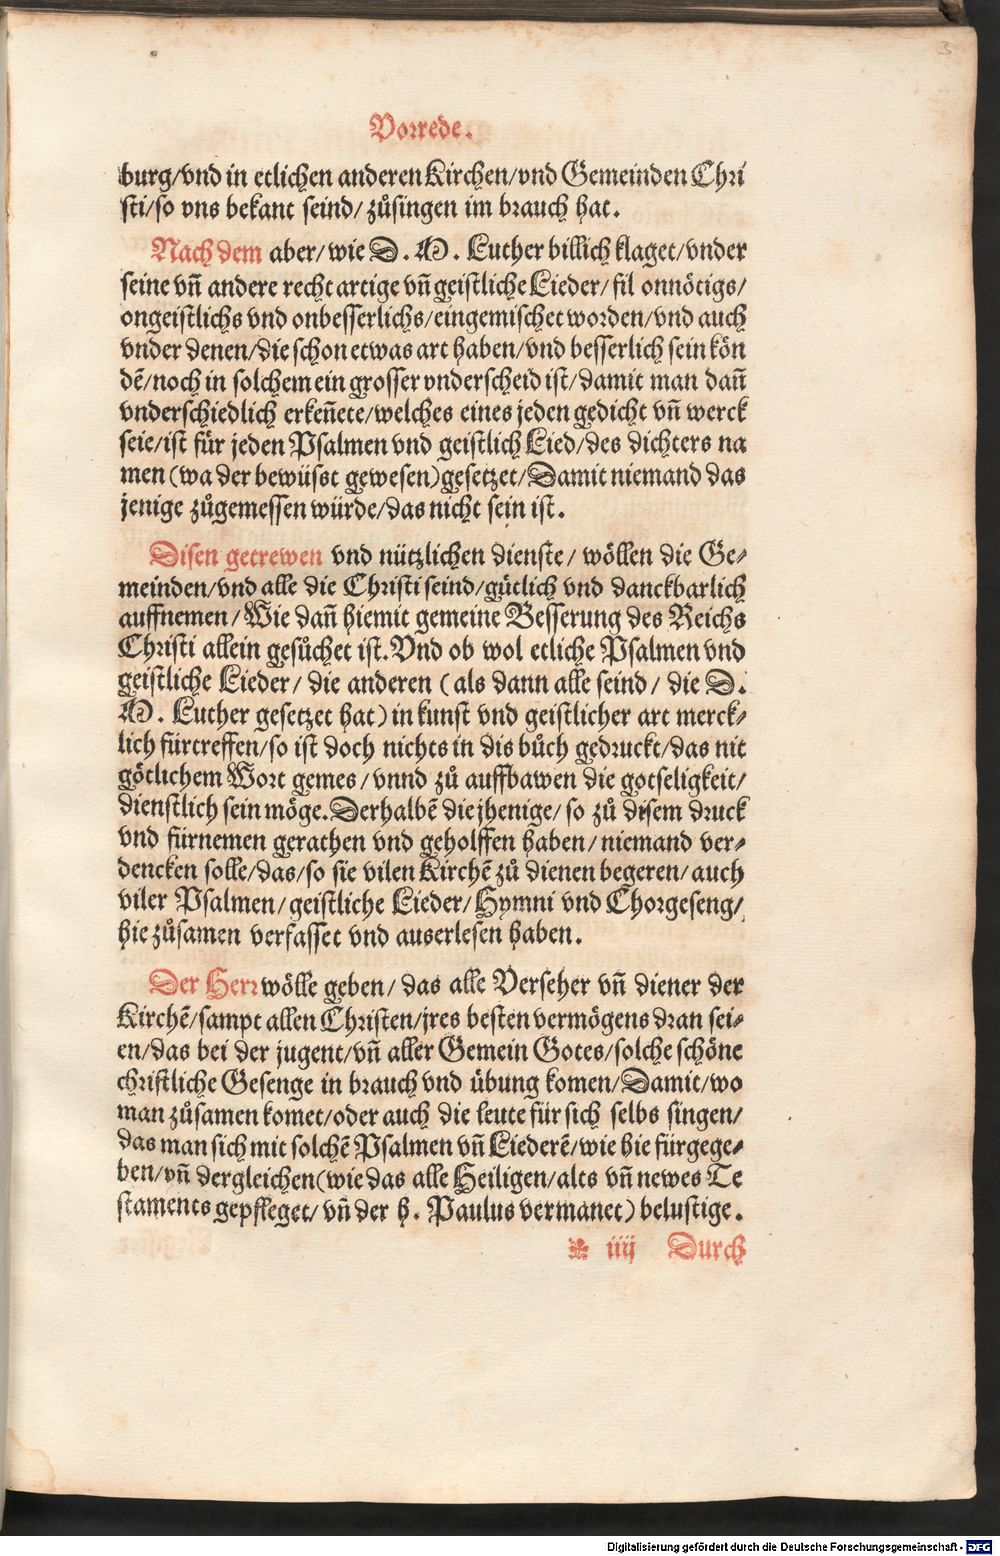 3
Vorrede.
burg/vnd in etlichen anderen Kirchen/vnd Gemeinden Chri
sti/so vns bekant seind/zůsingen im brauch hat.
Nach dem aber/wie D. M. Luther billich klaget/vnder
seine vñ andere recht artige vñ geistliche Lieder/fil onnötigs/
ongeistlichs vnd onbesserlichs/eingemischet worden/vnd auch
vnder denen/die schon etwas art haben/vnd besserlich sein kön
dẽ/noch in solchem ein grosser vnderscheid ist/damit man dañ
vnderschiedlich erkeñete/welches eines jeden gedicht vñ werck
seie/ist für jeden Psalmen vnd geistlich Lied/des dichters na
men (wa der bewüsst gewesen) gesetzet/Damit niemand das
jenige zůgemessen würde/das nicht sein ist.
Disen getrewen vnd nützlichen dienste/ wöllen die Ge⸗
meinden/vnd alle die Christi seind/gütlich vnd danckbarlich
auffnemen/Wie dañ hiemit gemeine Besserung des Reichs
Christi allein gesůchet ist. Vnd ob wol etliche Psalmen vnd
geistliche Lieder/ die anderen (als dann alle seind/ die D.
M. Luther gesetzet hat) in kunst vnd geistlicher art merck⸗
lich fürtreffen/so ist doch nichts in dis bůch gedruckt/das nit
götlichem Wort gemes/vnnd zů auffbawen die gotseligkeit/
dienstlich sein möge. Derhalbẽ die jhenige/ so zů disem druck
vnd fürnemen gerathen vnd geholffen haben/niemand ver⸗
dencken solle/das/so sie vilen Kirchẽ zů dienen begeren/auch
viler Psalmen/geistliche Lieder/Hymni vnd Chorgeseng/
hie zůsamen verfasset vnd auserlesen haben.
Der Herr wölle geben/das alle Verseher vñ diener der
Kirchẽ/sampt allen Christen/jres besten vermögens dran sei⸗
en/das bei der jugent/vñ aller Gemein Gotes/solche schöne
christliche Gesenge in brauch vnd übung komen/Damit/wo
man zůsamen komet/oder auch die leute für sich selbs singen/
das man sich mit solchẽ Psalmen vñ Liederẽ/wie hie fürgege⸗
ben/vñ dergleichen (wie das alle Heiligen/alts vñ newes Te
staments gepfleget/vñ der h. Paulus vermanet) belustige.
❧ iiij Durch
Digitalisierung gefördert durch die Deutsche Forschungsgemeinschaft - DFG